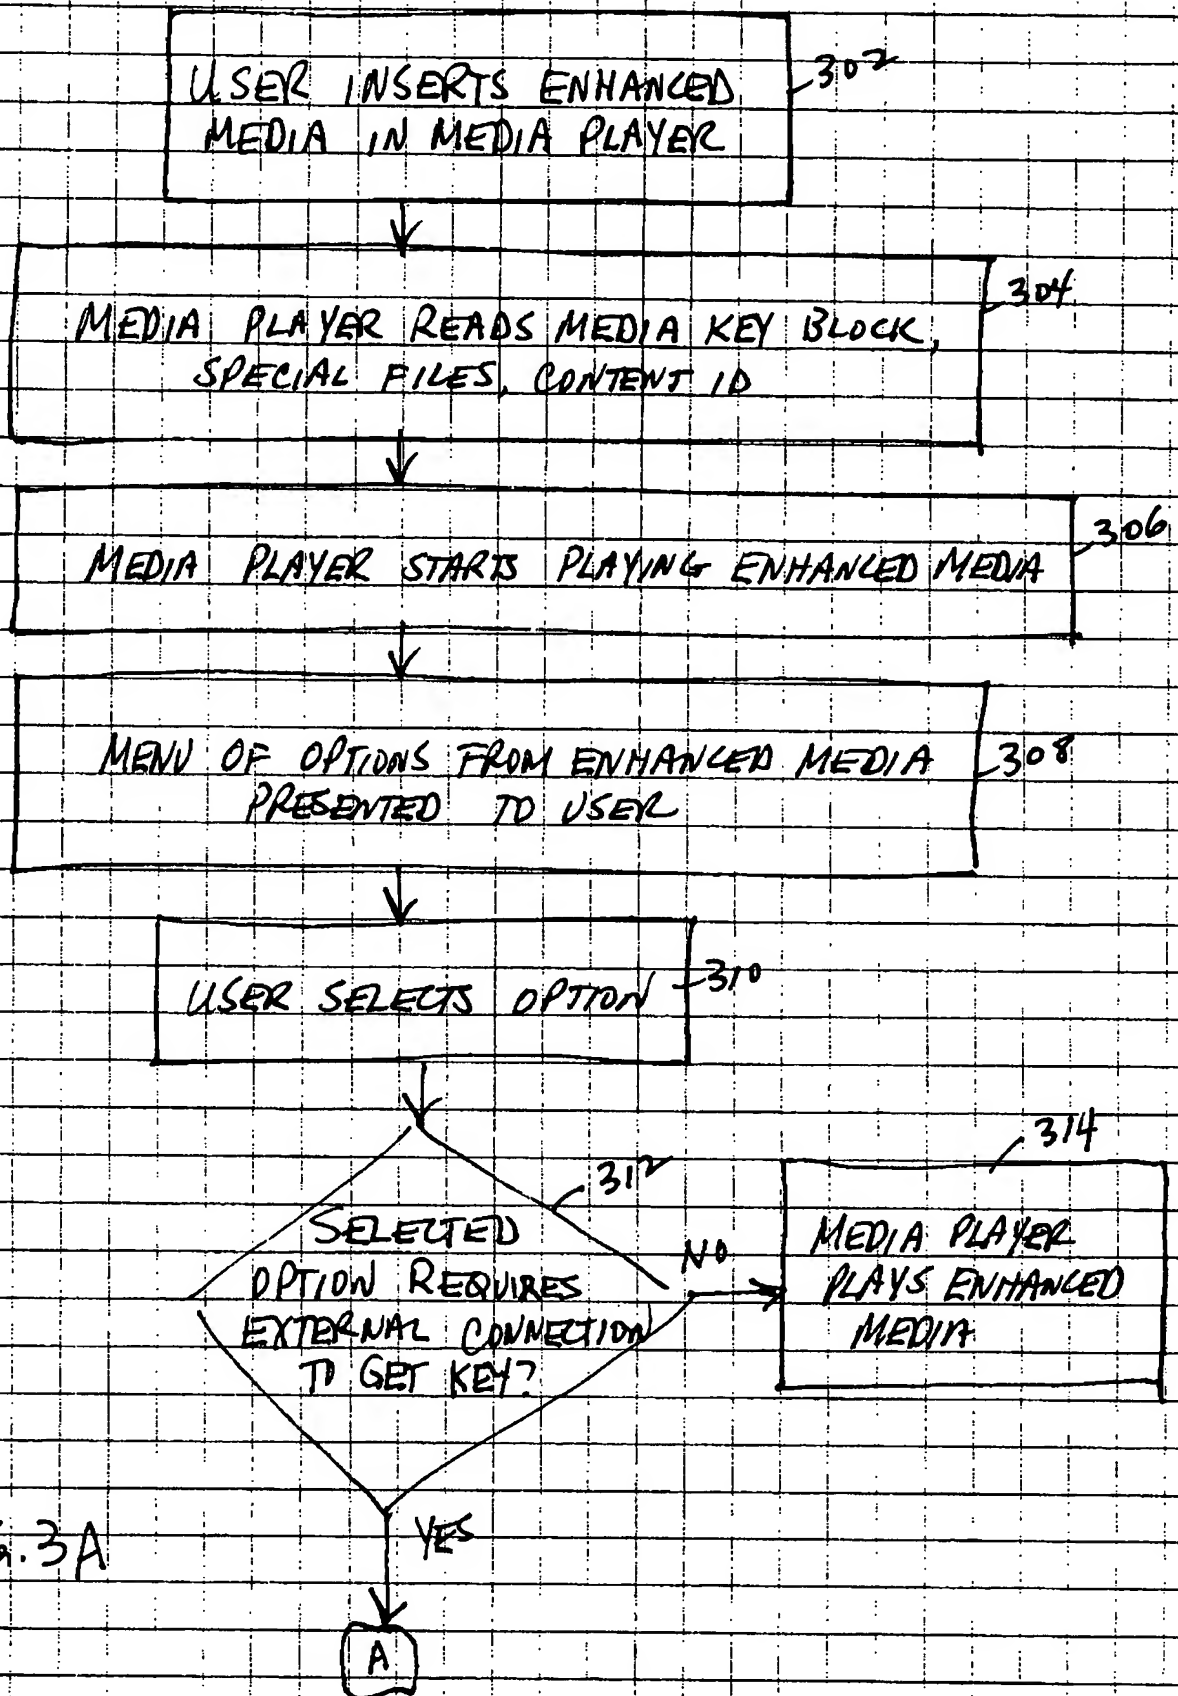 USER INSERTS ENHANCED
MEDIA IN MEDIA PLAYER
302
MEDIA PLAYER READS MEDIA KEY BLOCK,
SPECIAL FILES, CONTENT ID
304
MEDIA PLAYER STARTS PLAYING ENHANCED MEDIA
306
MENU OF OPTIONS FROM ENHANCED MEDIA
PRESENTED TO USER
308
USER SELECTS OPTION
310
312
SELECTED
OPTION REQUIRES
EXTERNAL CONNECTION
TO GET KEY?
NO
314
MEDIA PLAYER
PLAYS ENHANCED
MEDIA
YES
3A
A